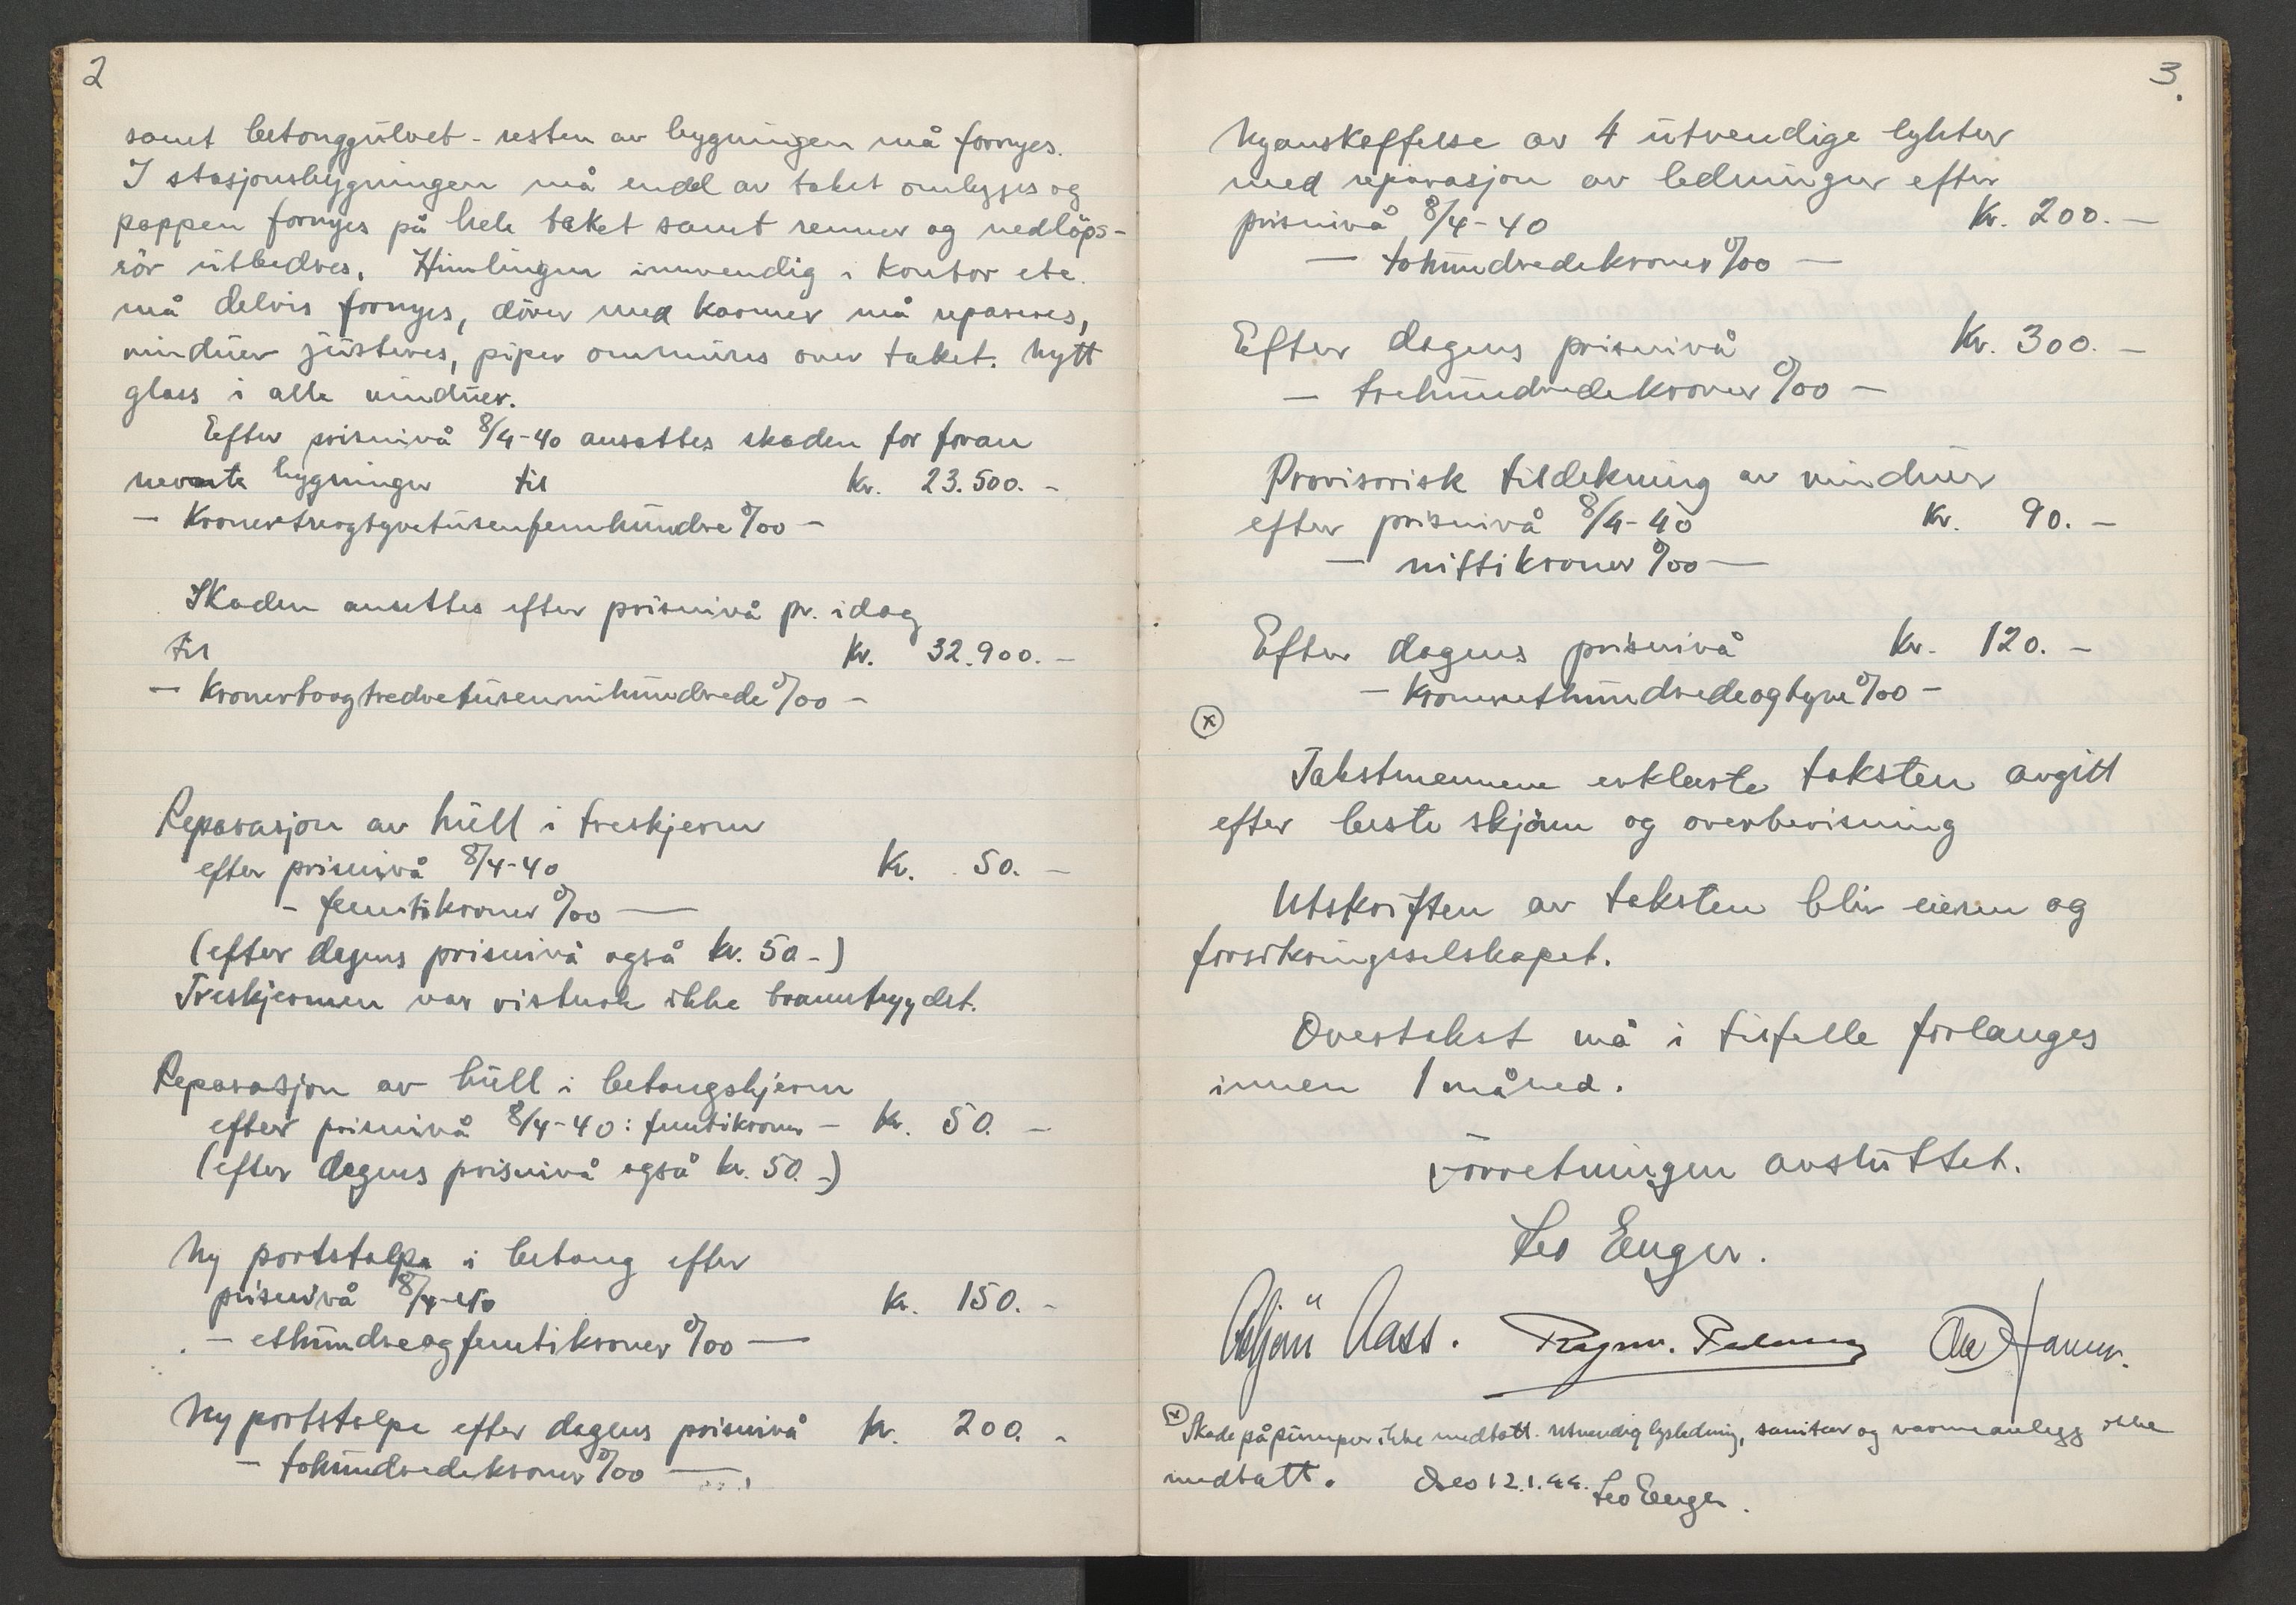 2
samt betonggulvet - resten av bygningen må fornyes.
I stasjonsbygningen må endel av taket omlegges og
pappen fornyes på hele taket samt renner og nedlöps-
rör utbedres. Himlingen innvendig i kontor etc.
må delvis fornyes, dörer med karmer må repareres,
vinduer justeres, piper ommures over taket. Nytt
glass i alle vinduer.
Efter prisnivå 8/4-40 ansattes skaden for foran
nevnte bygninger til kr. 23.500. -
- Kronertreogtyvetusenfemhundre 0/00 -
Skaden ansettes efter prisnivå pr. idag
til kr. 32.900. -
- Kronertoogtredvetusennihundrede 0/00 -
Reparasjon av hull i treskjerm
efter prisnivå 8/4-40 Kr. 50. -
- femtikroner 0/00 -
(efter dagens prisnivå også kr. 50 -)
Treskjermen var vistnok ikke branntrygdet.
Reparasjon av hull i betongskjerm
efter prisnivå 8/4-40: femtikroner - kr. 50. -
(efter dagens prisnivå også kr. 50. -)
Ny portstolpe i betong efter
prisnivå 8/4-40 kr. 150. -
- ethundreogfemtikroner 0/00 -
Ny portstolpe efter dagens prisnivå kr. 200. -
- tohundredekroner 0/00 -
3.
Nyanskaffelse av 4 utvendige lykter
med reparasjon av ledninger efter
prisnivå 8/4-40 Kr. 200. -
- tohundredekroner 0/00 -
Efter dagens prisnivå Kr. 300. -
- trehundredekroner 0/00 -
Provisorisk tildekning av vinduer
efter prisnivå 8/4-40 kr. 90. -
- nittikroner 0/00 -
Efter dagens prisnivå kr. 120. -
- Kronerethundredeogtyve 0/00 -
(x)
Takstmennene erklærte taksten avgitt
efter beste skjönn og overbevisning
Utskriften av taksten blir eieren og
forsikringsselskapet.
Overtakst må i tilfelle forlanges
innen 1 måned.
Forretningen avsluttet.
Leo Enger.
Aass. Ragnv. Hamm.
(x) Skade på pumper ikke medtatt. Utvendig lysledning, sanitær og varmeanlegg ikke
medtatt. Oslo 12.1.44. Leo Enger.